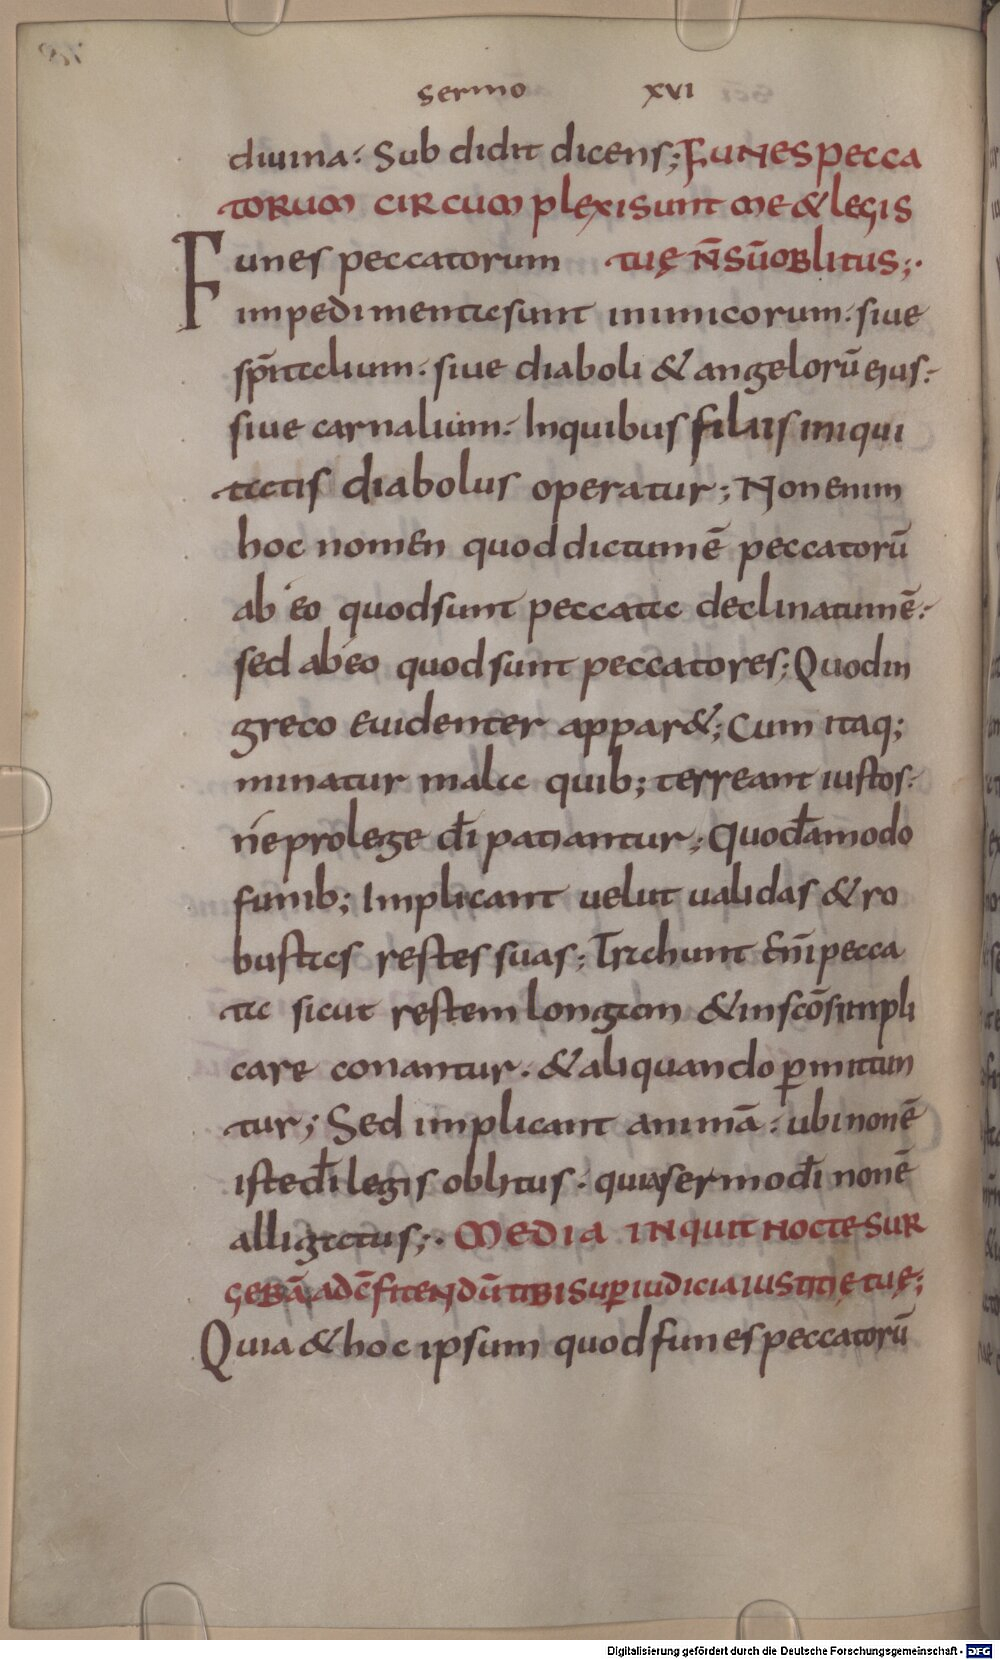 sermo xvi
diuina: Sub didit dicens; Funes pecca
torum circum plexi sunt me & legis
Funes peccatorum tuę n̄ sū oblitus;·
impedimenta sunt inimicorum· siue
sp̄italium· siue diaboli & angelorū eius:
siue carnalium· In quibus filiis iniqui
tatis diabolus operatur; Non enim
hoc nomen quod dictum ē peccatorū
ab eo quod sunt peccata declinatum ē:
sed ab eo quod sunt peccatores; Quod in
greco euidenter appar&; Cum itaq;
minatur mala quib; terreant iustos·
ne pro lege dī patiantur; Quodāmodo
funib; Implicant uelut ualidas & ro
bustas restes suas; Trahunt enī pecca
ta sicut restem longam & in sc̄os impli
care conantur· & aliquando p̲mittun
tur; Sed implicant animā: ubi non ē
iste dī legis oblitus· quia sermo dī non ē
alligatus;· Media inquit nocte sur
gebā ad c̄fitendū tibi sup̲ iudicia iustitię tuę;
Quia & hoc ipsum quod funes peccatorū
Digitalisierung gefördert durch die Deutsche Forschungsgemeinschaft - DFG